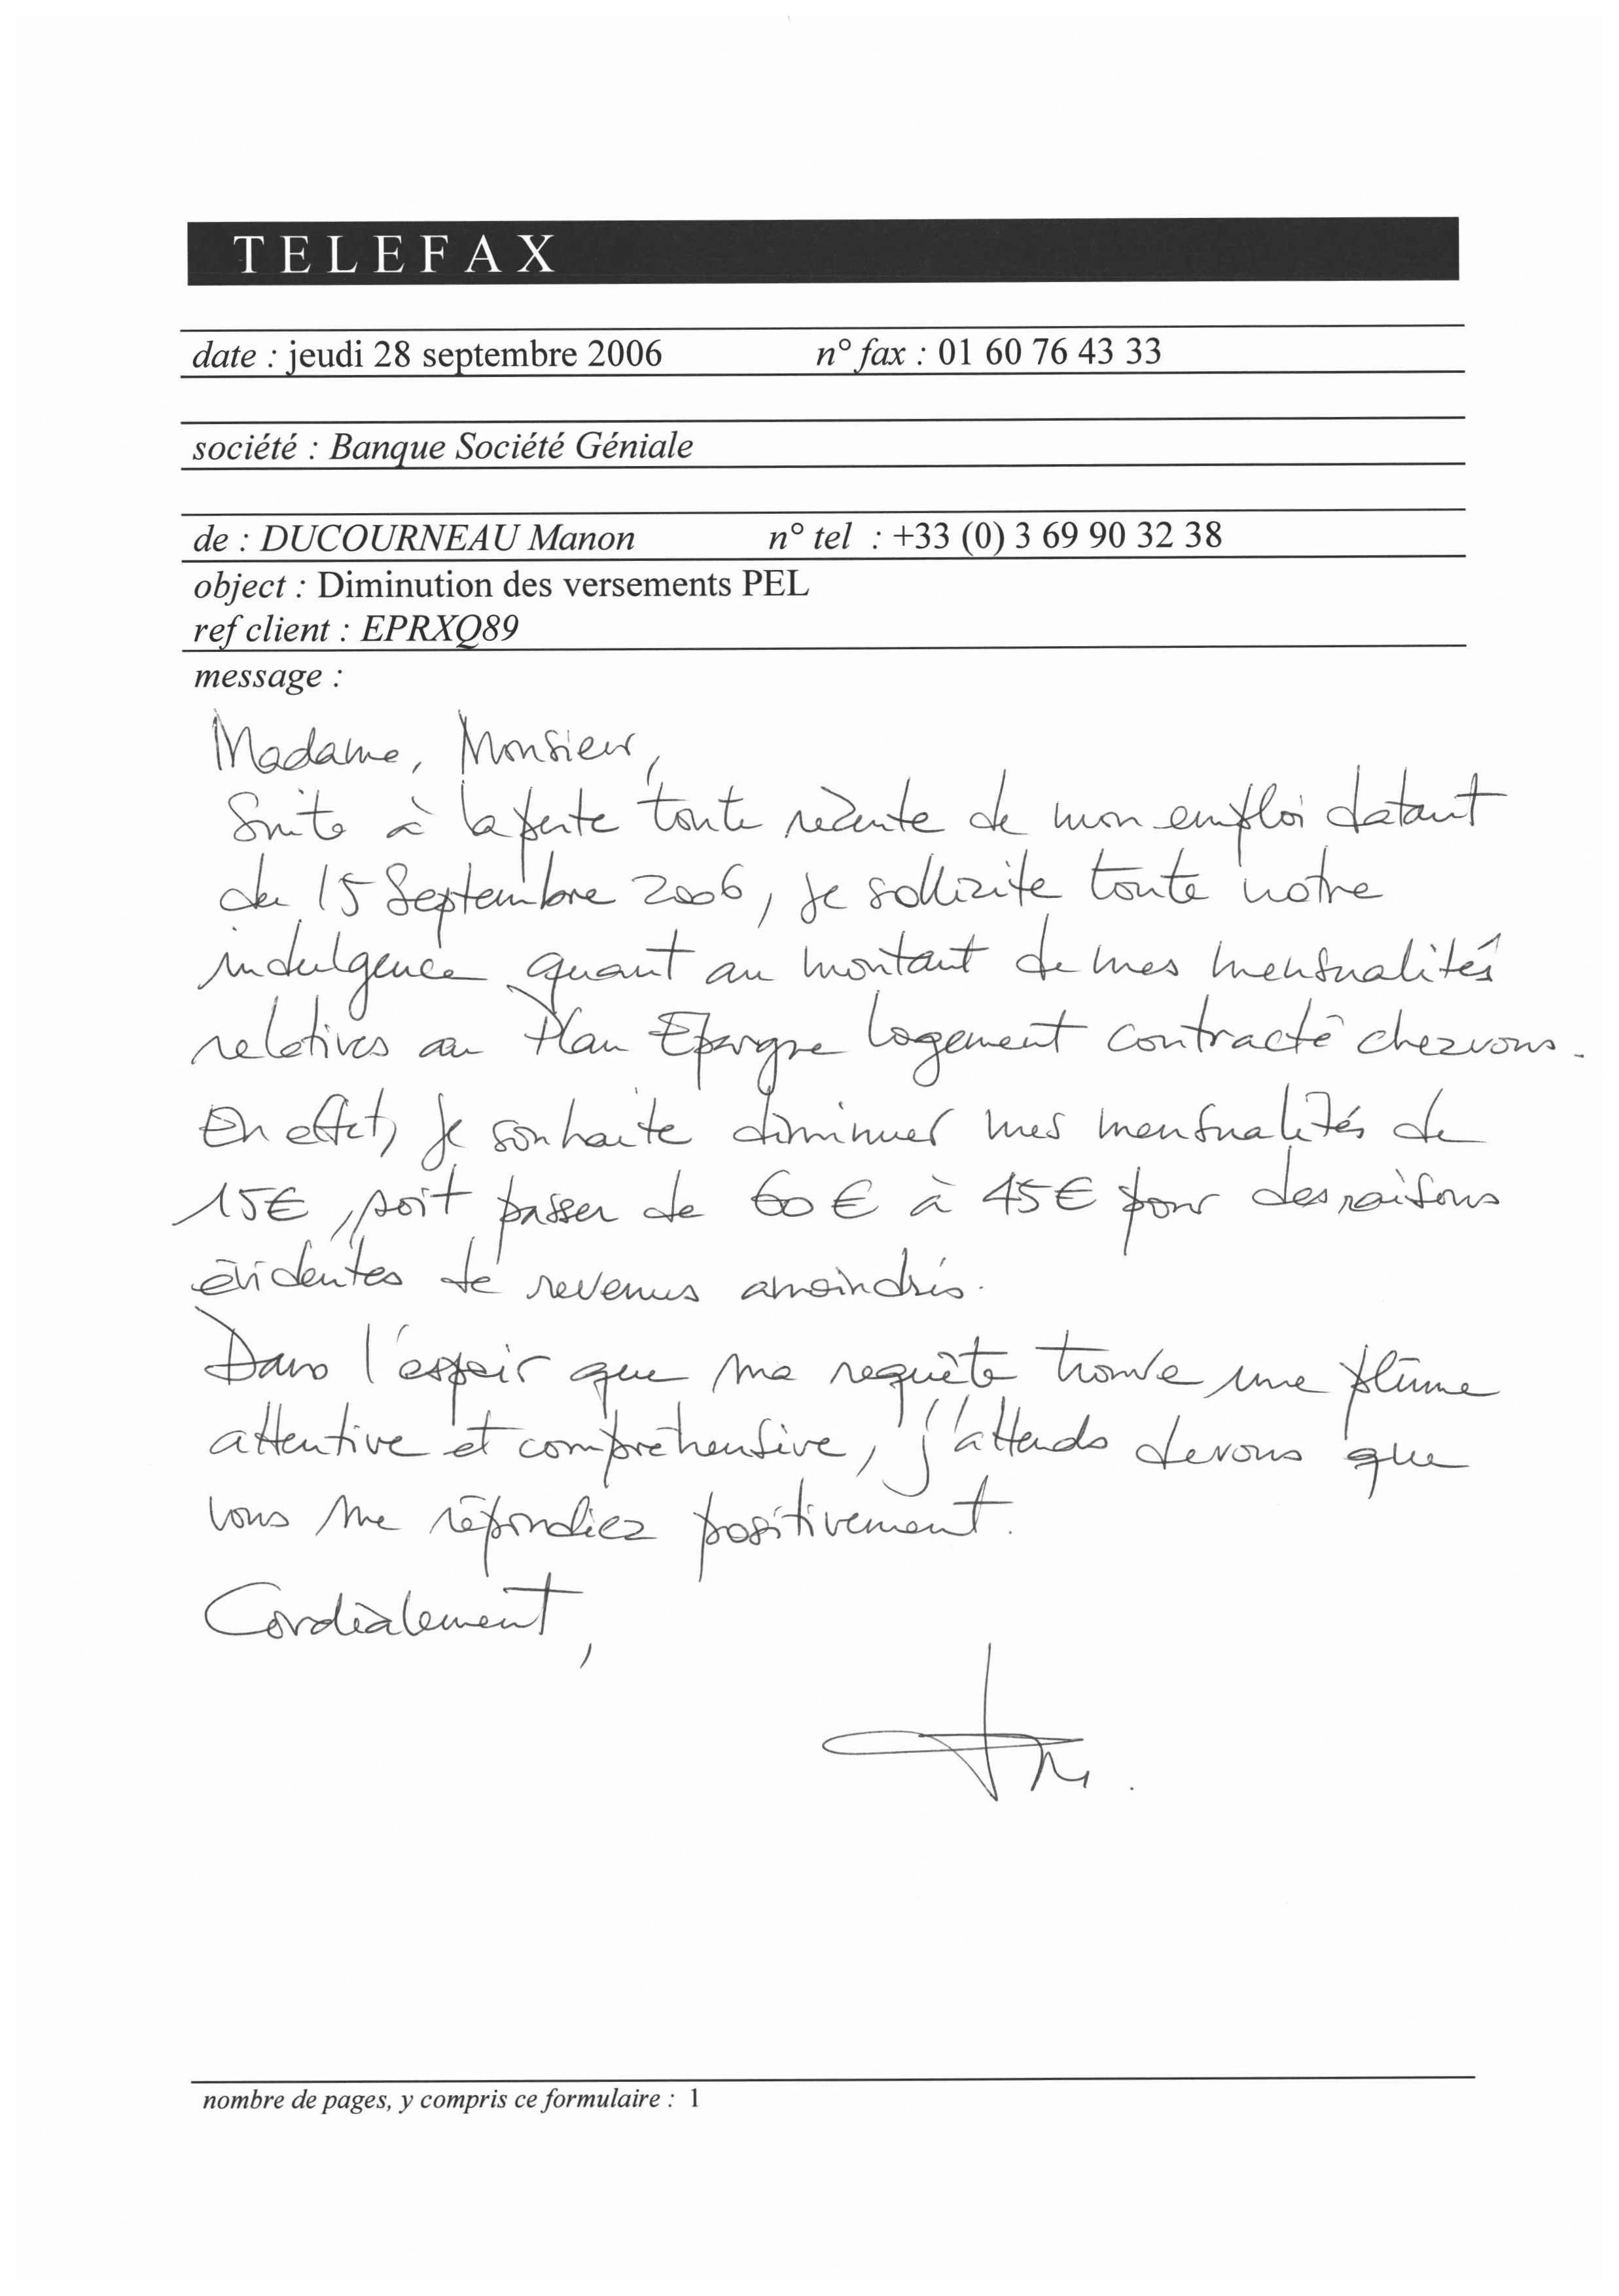 TELEFAX
date : jeudi 28 septembre 2006 n° fax : 01 60 76 43 33
société : Banque Société Géniale
de : DUCOURNEAU Manon n° tel : +33 (0) 3 69 90 32 38
object : Diminution des versements PEL
ref client : EPRXQ89
message :
Madame, Monsieur,
Suite à la perte toute récente de mon emploi datant
du 15 Septembre 2006, je sollicite toute votre
indulgence quant au montant de mes mensualités
relatives au Plan Epargne Logement contracté chez vous.
En effet, je souhaite diminuer mes mensualités de
15€, soit passer de 60€ à 45€ pour des raisons
évidentes de revenus amoindris.
Dans l'espoir que ma requête trouve une plume
attentive et compréhensive, j'attends de vous que
vous me répondiez positivement.
Cordialement,
nombre de pages, y compris ce formulaire : 1